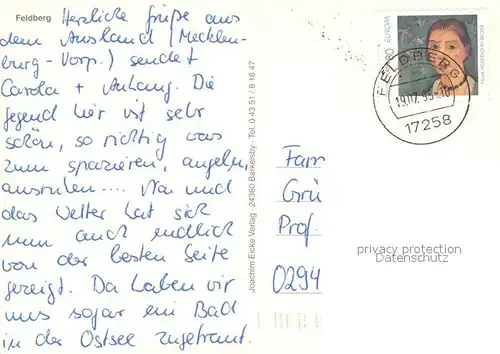 Feldberg
Herzliche Grüße aus
dem Ausland (Mecklen-
burg-Vorp.) sendet
Carola + Anhang. Die
Gegend hier ist sehr
schön, so richtig was
zum spazieren, angeln,
ausruhen.... Na und
das Wetter hat sich
nun auch endlich
von der besten Seite
gezeigt. Da haben wir
uns sogar ein Bad
in der Ostsee zugetraut.
Joachim Eicke Verlag · 24360 Barkelsby · Tel. 0 43 51 / 8 18 47
80 EUROPA
FELDBERG
17258
Fam
Grü
Prof.
0294
privacy protection
Datenschutz